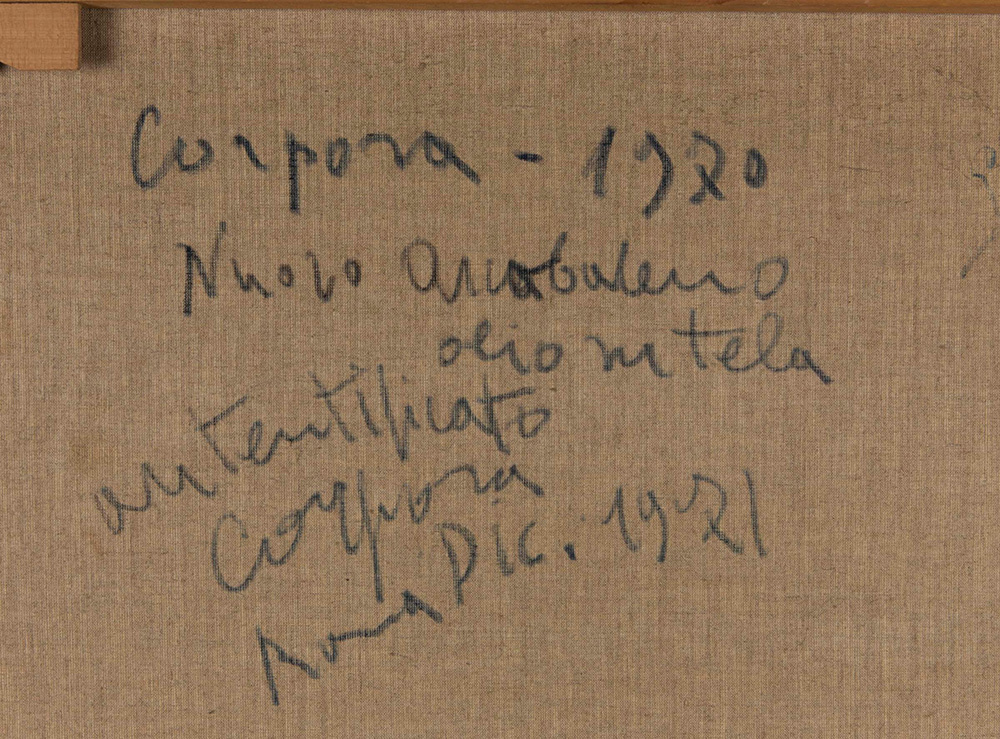 Corpora - 1970
Nuovo Arcobaleno
olio su tela
autentificato
Corpora
Roma Dic. 1971